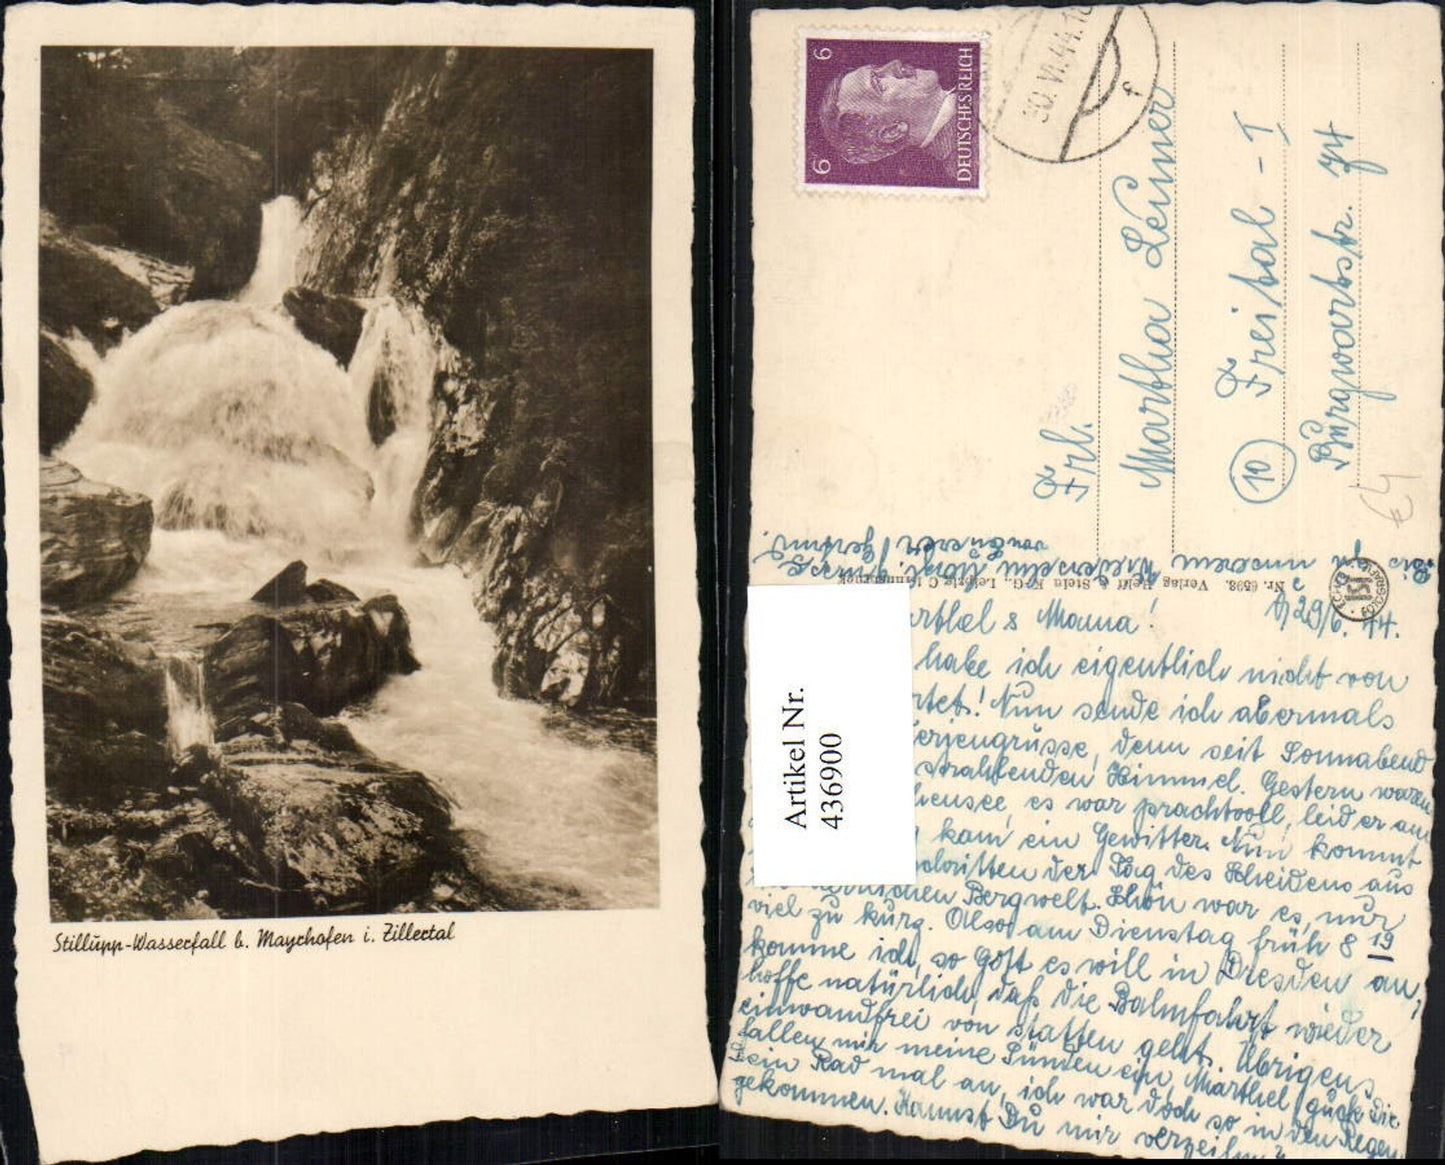 Stillupp-Wasserfall b. Mayrhofen i. Zillertal
6
6
DEUTSCHES REICH
30. VI. 44. 1
f
Frl.
Martha Leiner
(10) Freital - I
Burgwartstr. 74
Bis zu unserem Wiedersehn
Nr. 6598. Verlag Helff & Stein K.-G., Leipzig C 1
ISI
Artikel Nr.
436900
29/6. 44.
rthel & Mama!
habe ich eigentlich nicht von
rtet! Nun sende ich abermals
denn seit Sonnabend
strahlenden Himmel. Gestern waren
hensee, es war prachtvoll, leider am
kam ein Gewitter. Nun kommt
der Tag des Scheidens aus
Bergwelt. Schön war es, nur
viel zu kurz. Also am Dienstag früh 8 19
komme ich, so Gott es will in Dresden an,
hoffe natürlich, daß die Bahnfahrt wieder
einwandfrei von statten geht. Übrigens
fallen mir meine Sünden ein, Marthel guck Dir
ein Rad mal an, ich war doch so in den Regen
gekommen. Kannst Du mir verzeihn?